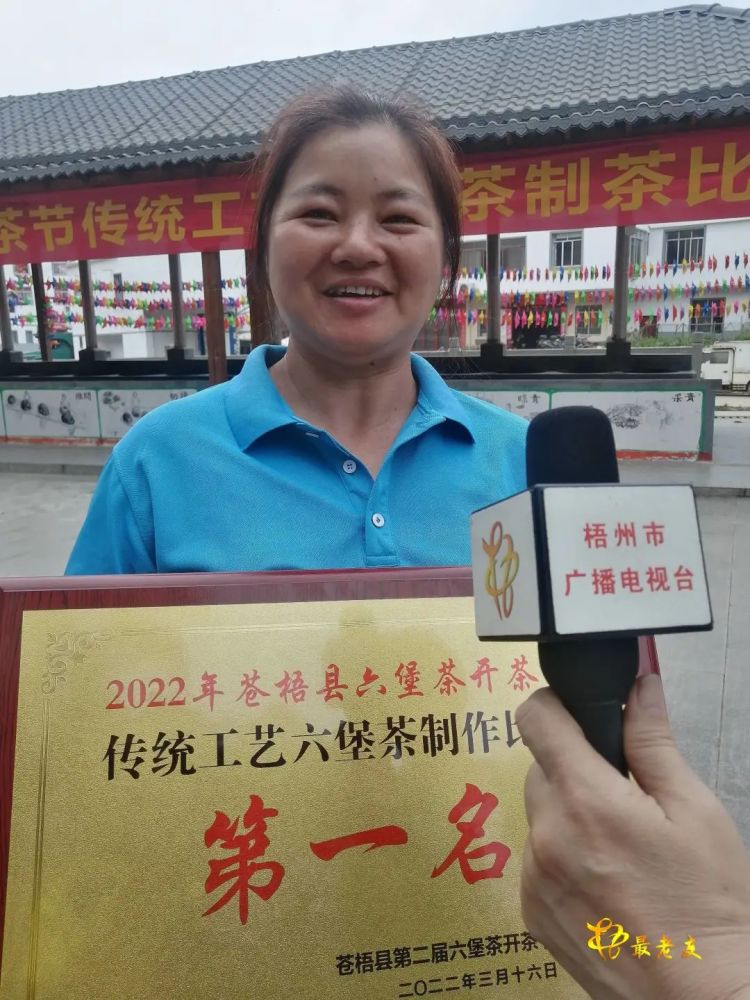 茶节传统工 茶制茶比
晾青
采青
梧州市
广播电视台
2022年苍梧县六堡茶开茶
传统工艺六堡茶制作比
第一名
苍梧县第二届六堡茶开茶
二〇二二年三月十六日
最老友